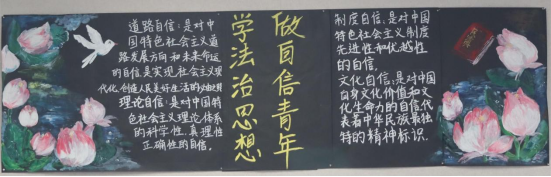 道路自信:是对中
国特色社会主义道
路发展方向和未来命运
的自信是实现社会主义现
代化、创造人民美好生活的必由之路
理论自信:是对中国特
色社会主义理论体系
的科学性、真理性
正确性的自信。
做自信青年
学法治思想
制度自信:是对中国
特色社会主义制度
先进性和优越性
的自信。
文化自信:是对中国
自身文化价值和文
化生命力的自信,代
表着中华民族最独
特的精神标识.